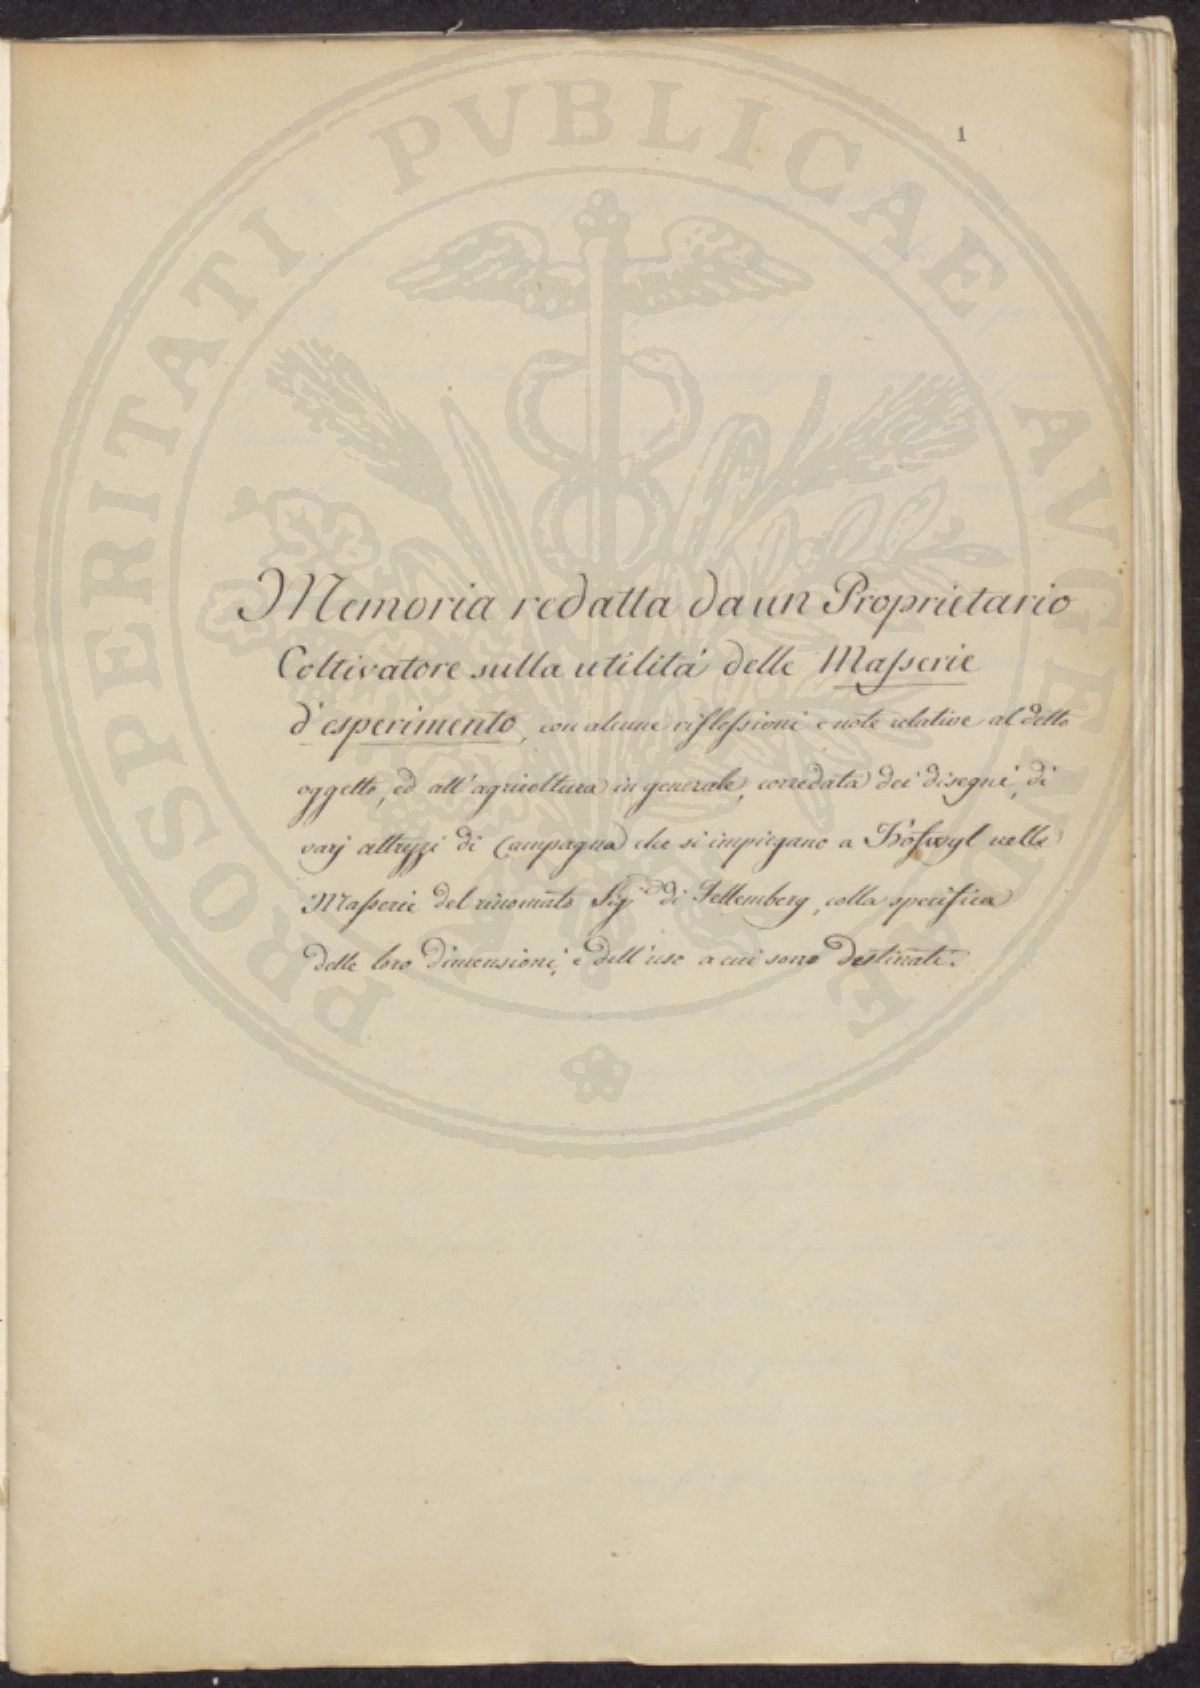 1
PROSPERITATI PUBLICAE AUGENDAE
Memoria redatta da un Proprietario
Coltivatore sulla utilitá delle Maſserie
d'esperimento, con alcune rifleſsioni e note relative al detto
oggetto, ed all'agricoltura in generale, corredata dei disegni, di
varj attrezzi di Campagna che si impiegano a Hofwyl nelle
Maſserie del rinomato Sig.r di Fellemberg, colla specifica
delle loro dimensioni, e dell'uso a cui sono destinate.